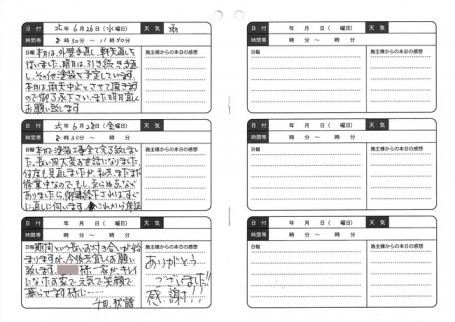 日付 25年6月26日(水曜日) 天気 雨
時間帯 8時30分〜11時30分
日報 本日は、外壁手直し、軒天直しを
行いました。明日は、引き続き手直
し、その他塗装を予定しています。
本日は、雨天中止とさせて頂きます
ので御了承下さい。また明日宜しく
お願い致します
施主様からの本日の感想
日付 25年6月28日(金曜日) 天気
時間帯 8時30分〜 時 分
日報 本日で塗装工事全て完了致しまし
た。長い間大変お世話になりました。
何度も見直しましたが、私共もまだまだ
修業中なのでもし、至らぬ点など
ありましたら、御連絡下さればすぐ
に直しに伺います。これから
施主様からの本日の感想
日付 年 月 日( 曜日) 天気
時間帯 時 分〜 時 分
日報 期間という長いお付き合いが始
まりますが、今後共宜しくお願い
致します。 様一家が、キレイ
になったお家で元気で笑顔で
暮らせます様に……
施主様からの本日の感想
ありがとう
ございました!!
感謝!!
日付 年 月 日( 曜日) 天気
時間帯 時 分〜 時 分
日報
施主様からの本日の感想
日付 年 月 日( 曜日) 天気
時間帯 時 分〜 時 分
日報
施主様からの本日の感想
日付 年 月 日( 曜日) 天気
時間帯 時 分〜 時 分
日報
施主様からの本日の感想